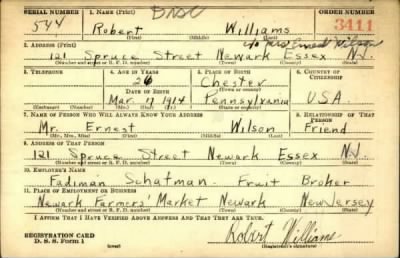 SERIAL NUMBER 1. NAME (Print) ORDER NUMBER
544 Robert Williams 3411
(First) (Middle) (Last)
2. ADDRESS (Print) c/o Mrs Ernest Wilson
121 Spruce Street Newark Essex N.J.
(Number and street or R. F. D. number) (Town) (County) (State)
3. TELEPHONE 4. AGE IN YEARS 5. PLACE OF BIRTH 6. COUNTRY OF CITIZENSHIP
26 Chester
DATE OF BIRTH (Town or county)
Mar. 7 1914 Pennsylvania U.S.A.
(Exchange) (Number) (Mo.) (Day) (Yr.) (State or country)
7. NAME OF PERSON WHO WILL ALWAYS KNOW YOUR ADDRESS 8. RELATIONSHIP OF THAT PERSON
Mr. Ernest Wilson Friend
(Mr., Mrs., Miss) (First) (Middle) (Last)
9. ADDRESS OF THAT PERSON
121 Spruce Street Newark Essex N.J.
(Number and street or R. F. D. number) (Town) (County) (State)
10. EMPLOYER'S NAME
Fadiman Schatman - Fruit Broker
11. PLACE OF EMPLOYMENT OR BUSINESS
Newark Farmers' Market Newark New Jersey
(Number and street or R. F. D. number) (Town) (County) (State)
I AFFIRM THAT I HAVE VERIFIED ABOVE ANSWERS AND THAT THEY ARE TRUE.
REGISTRATION CARD
D. S. S. Form 1 (over) Robert Williams
(Registrant's signature)